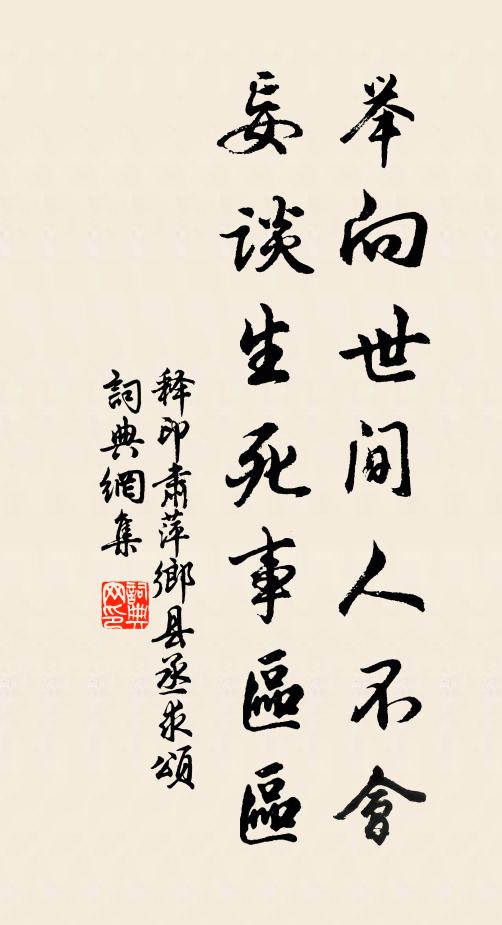 举向世间人不會
妄谈生死事區區
释印肃萍鄉县丞求頌
詞典網集
詞典网印